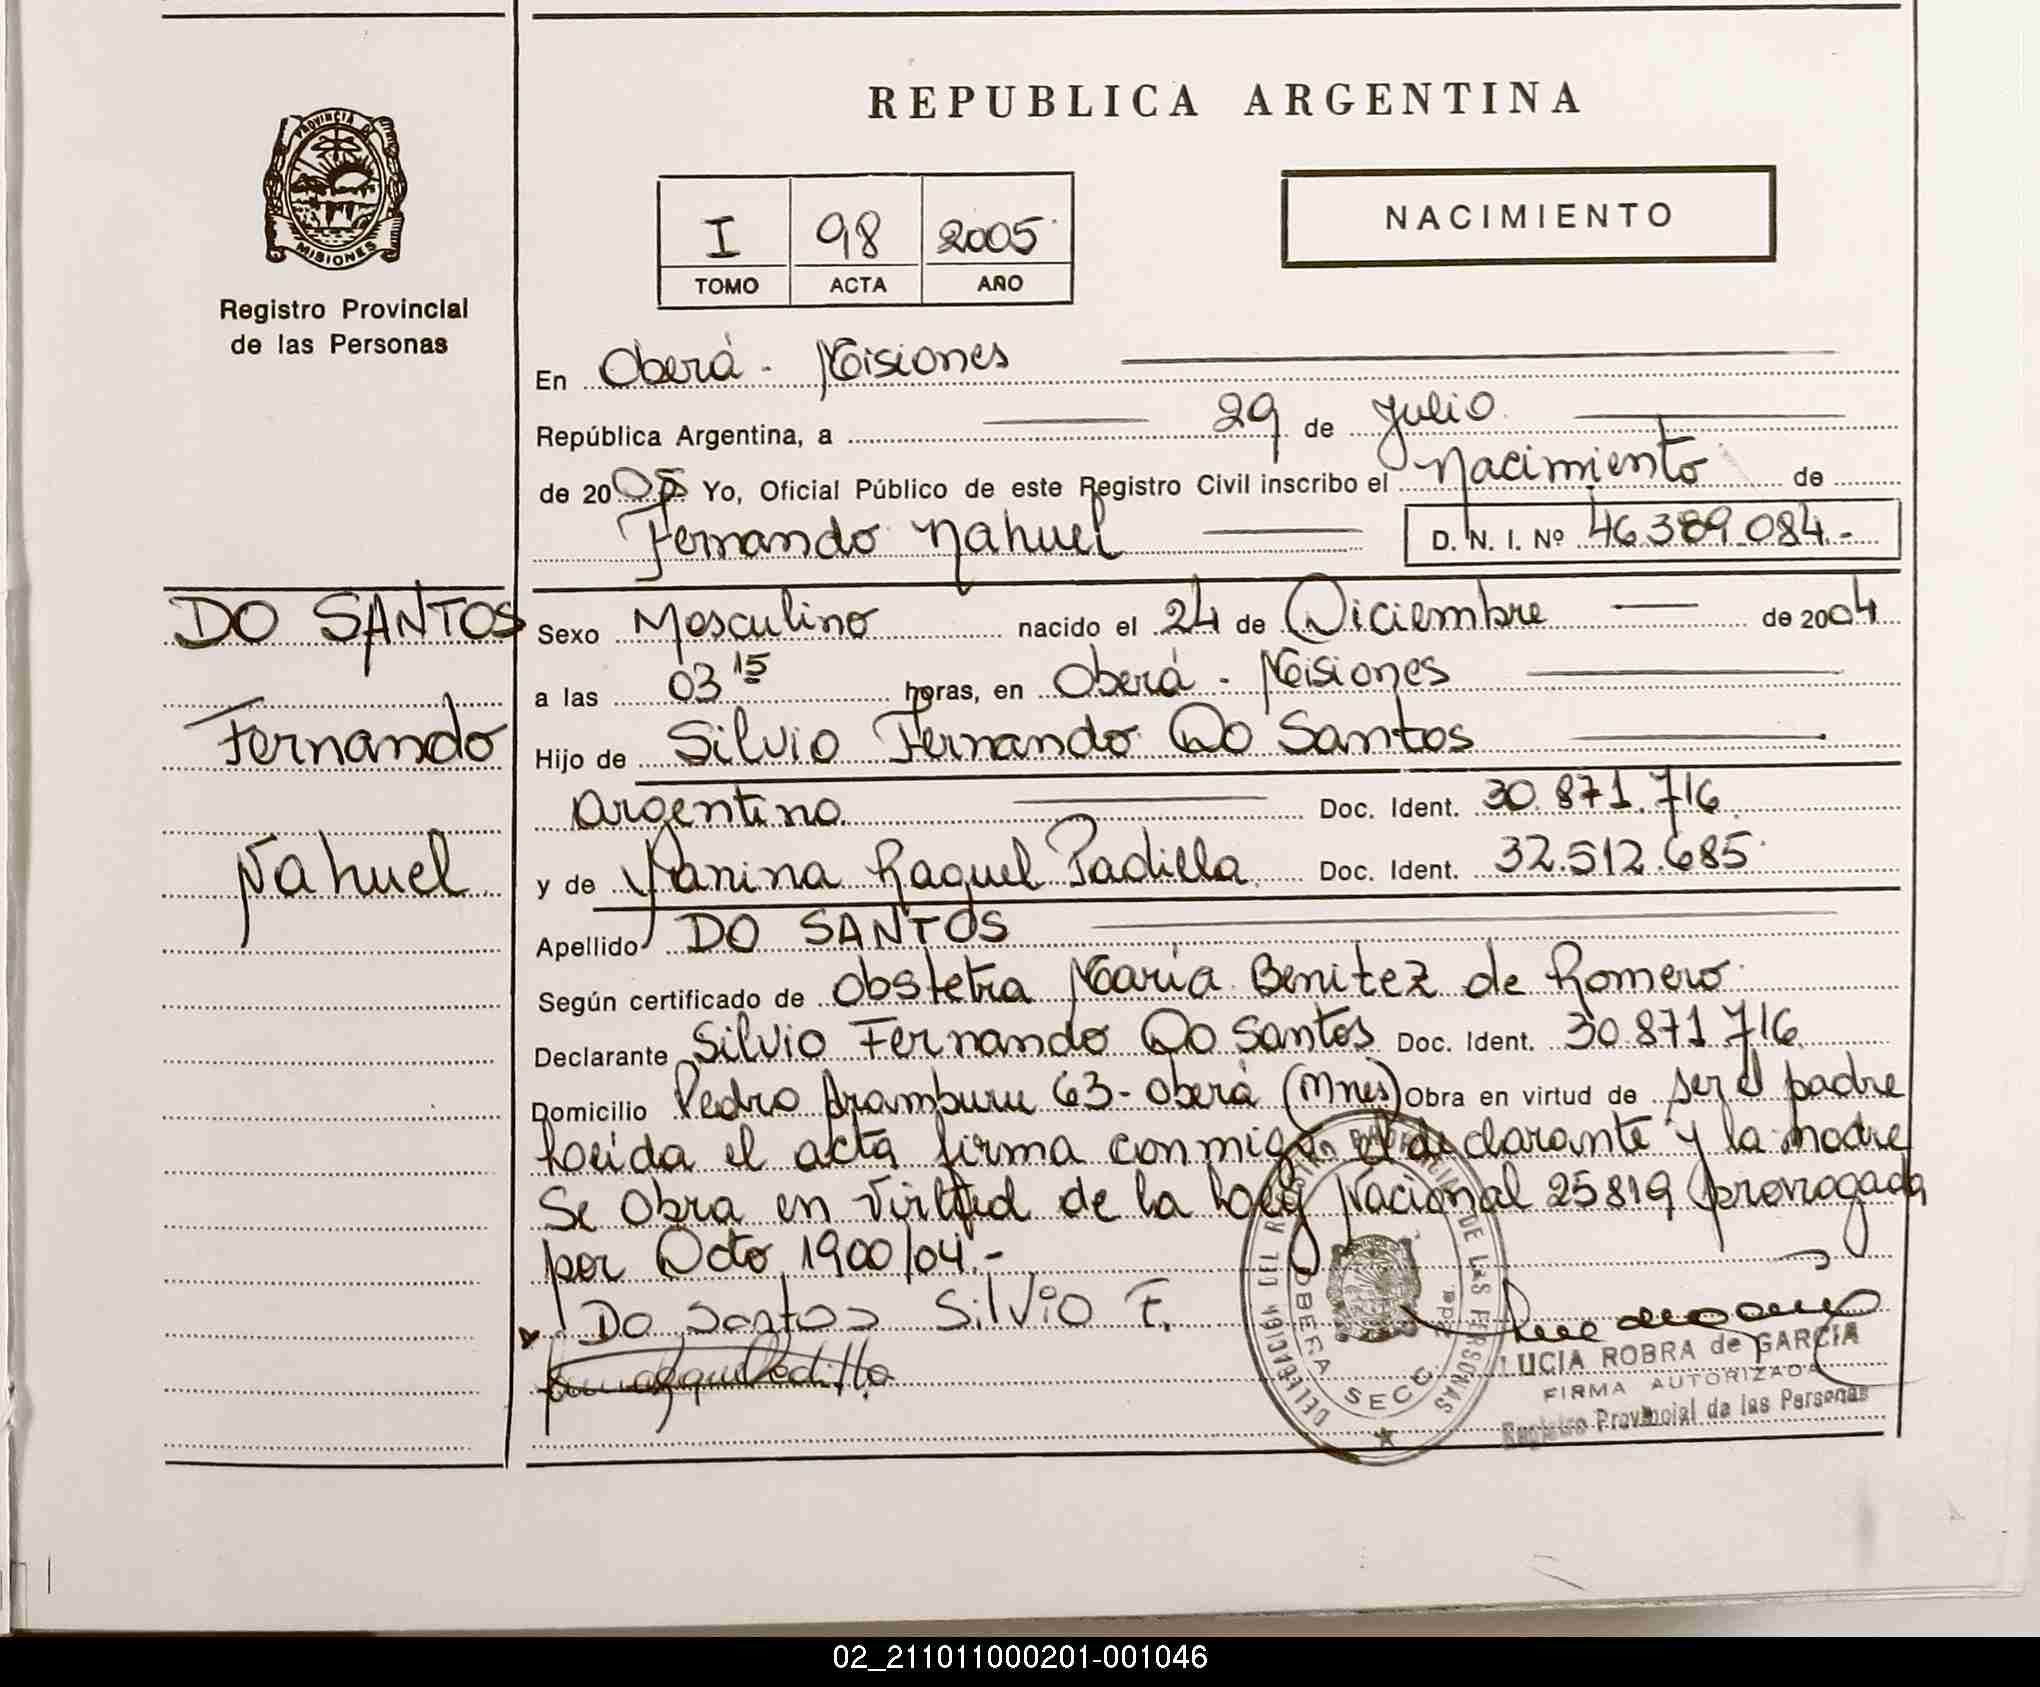 REPUBLICA ARGENTINA
PROVINCIA DE
MISIONES
Registro Provincial
de las Personas
I 98 2005
TOMO ACTA AÑO
NACIMIENTO
En Oberá - Misiones
República Argentina, a 29 de Julio
de 2005 Yo, Oficial Público de este Registro Civil inscribo el Nacimiento de
Fernando Nahuel D. N. I. Nº 46.389.084.-
DO SANTOS
Fernando
Nahuel
Sexo Masculino nacido el 24 de Diciembre de 2004
a las 03 15 horas, en Oberá - Misiones
Hijo de Silvio Fernando Do Santos
argentino Doc. Ident. 30.871.716
y de Yanina Raquel Padilla Doc. Ident. 32.512.685
Apellido DO SANTOS
Según certificado de Obstetra María Benitez de Romero
Declarante Silvio Fernando Do Santos Doc. Ident. 30.871.716
Domicilio Pedro Aramburu 63 - Oberá (Mnes) Obra en virtud de ser el padre
Leída el acta firma conmigo el declarante y la madre
Se Obra en Virtud de la Ley Nacional 25819 prorrogada
por Dcto 1900/04.-
Do Santos Silvio F.
DELEGACION DEL REGISTRO PROVINCIAL DE LAS PERSONAS
OBERA SECC
LUCIA ROBRA de GARCIA
FIRMA AUTORIZADA
Registro Provincial de las Personas
02_211011000201-001046